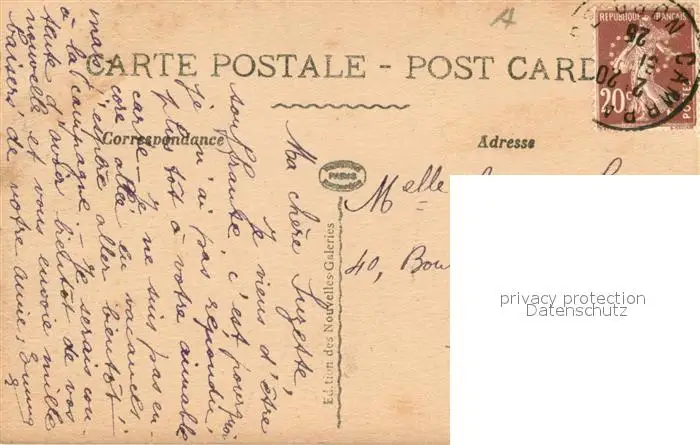 A
CARTE POSTALE - POST CARD
REPUBLIQUE FRANÇAISE
20c
POSTES
CAMBRAI
NORD
Correspondance
Adresse
PARIS
Edition des Nouvelles-Galeries
Ma chère Suzette,
Je viens d'être
souffrante, c'est pourquoi
je n'ai pas répondu
plus tôt à votre aimable
carte - Je ne suis pas en-
core allée en vacances.
J'espère aller bientôt
à la campagne - Je serais con-
tente d'avoir bientôt de vos
nouvelles et vous envoie mille
baisers de votre amie
Melle
40, Bou
privacy protection
Datenschutz